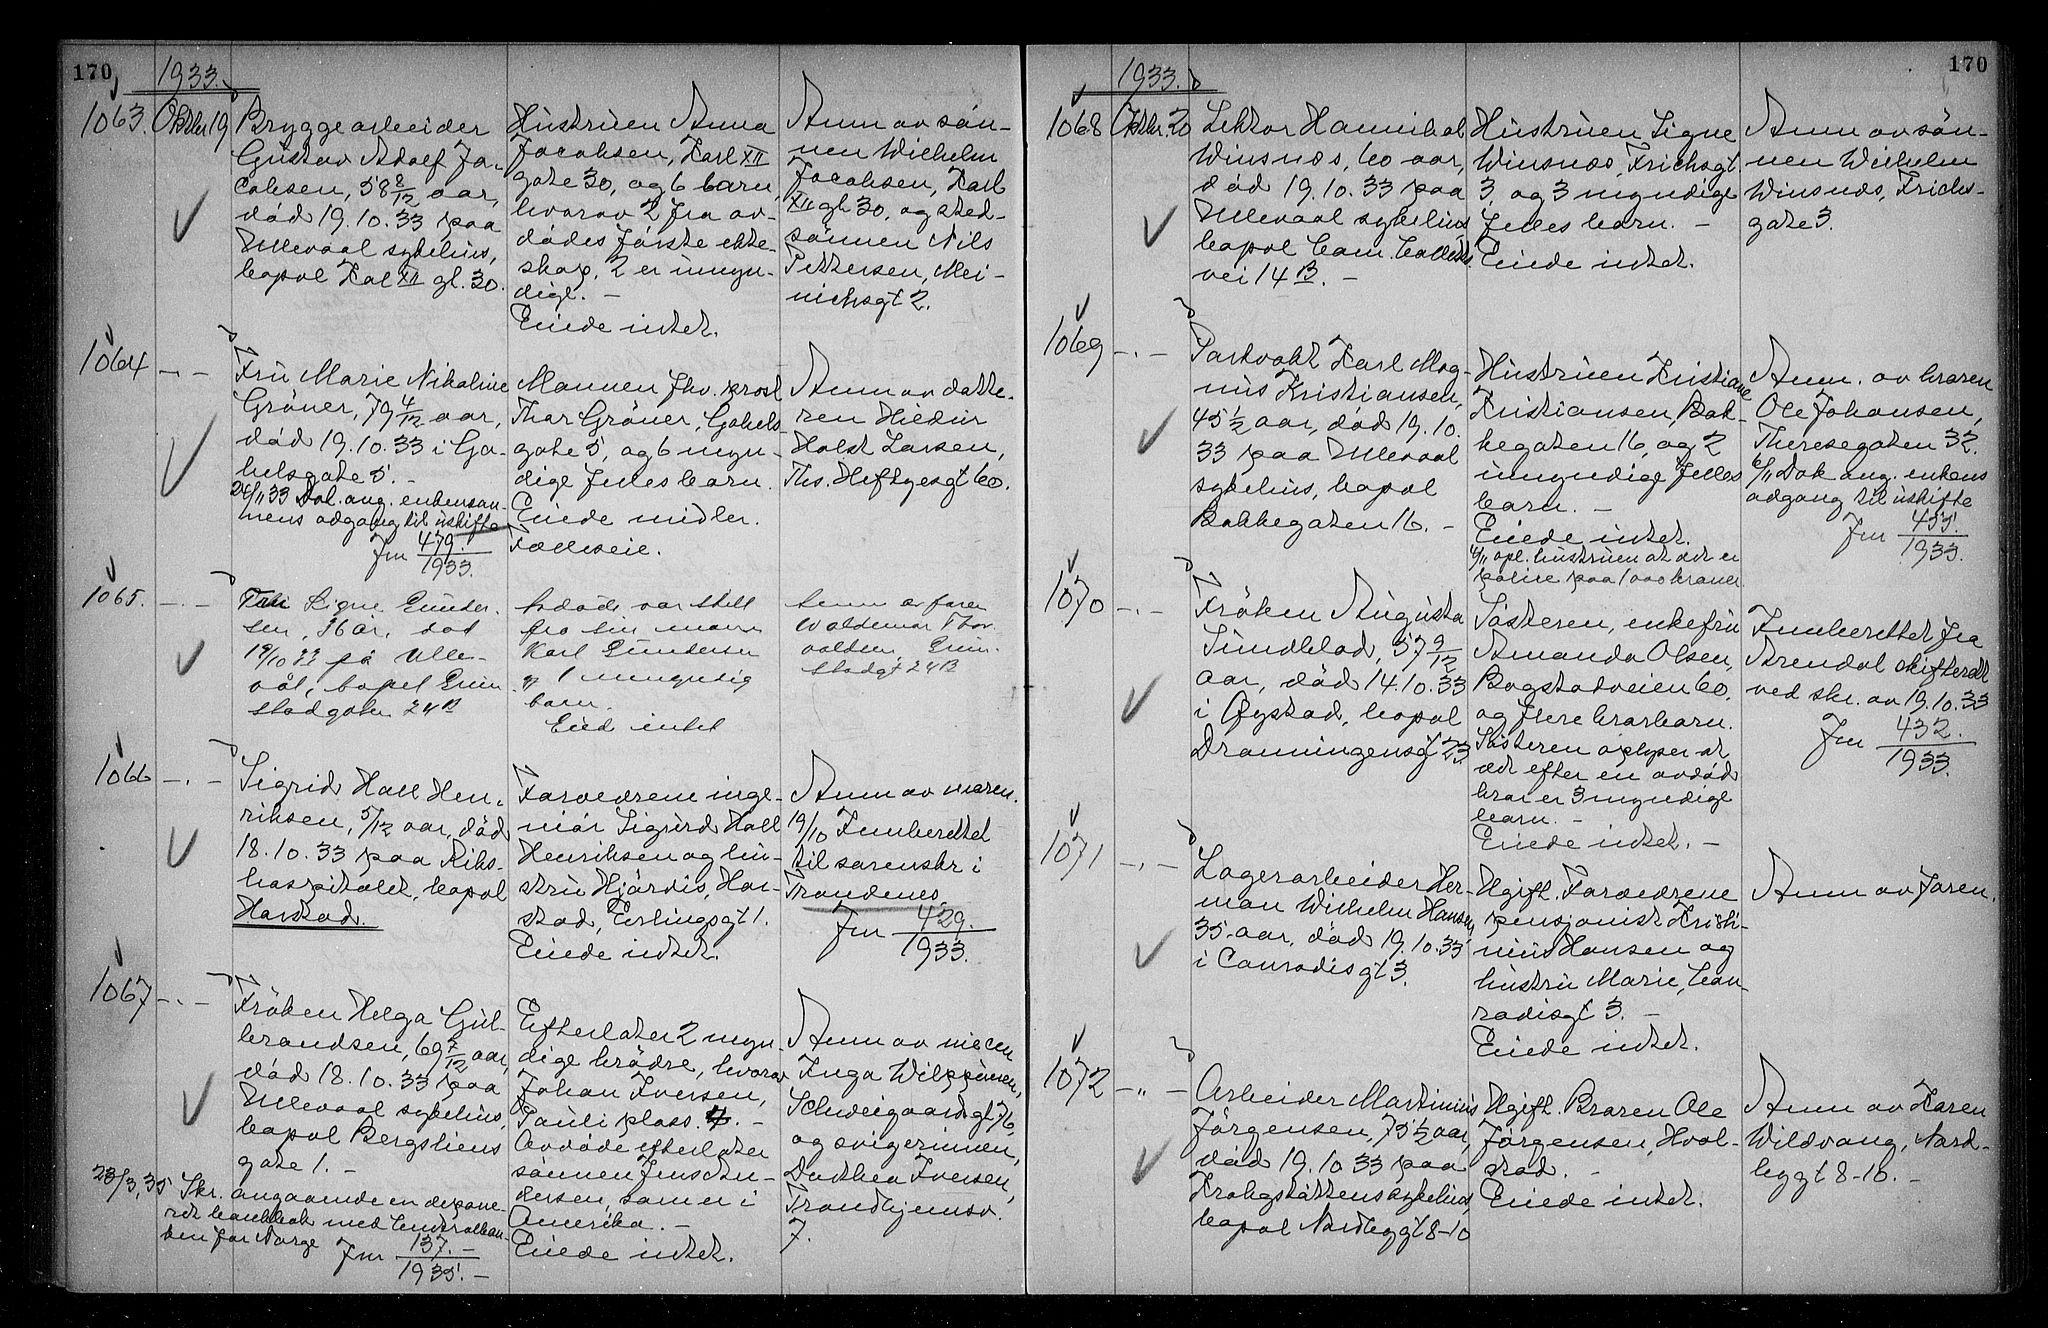 170
1933.
1063. Oktbr 19
Bryggearbeider
Gustav Adolf Ja-
cobsen, 58 8/12 aar,
död 19.10.33 paa
Ullevaal sykehus,
bopæl Karl XII gt. 30.
Hustruen Anna
Jacobsen, Karl XII
gate 30, og 6 barn,
hvorav 2 fra av-
dödes förste ekte-
skap, 2 er umyn-
dige. -
Eiede intet.
Anm av sön-
nen Wilhelm
Jacobsen, Karl
XII gt. 30, og sted-
sönnen Nils
Pettersen, Mei-
nichsgt 2.
1064 -.-
Fru Marie Nikoline
Gröner, 79 4/12 aar,
död 19.10.33 i Ga-
belsgate 5. -
24/11 33 Dok. ang. enkeman-
nens adgang til uskifte
Jnr 479./1933.
Mannen fhv. prost
Thor Gröner, Gabels-
gate 5, og 6 myn-
dige felles barn.
Eiede midler.
Fælleseie.
Anm av datte-
ren Hiedur
Holst Larsen,
Ths. Heftyesgt 60.
1065. -.-
Fru Signe Gunder-
sen, 36 år, död
19/10 33 på Ulle-
vål, bopel Grim
stadgaten 24 B
Avdøde var skilt
fra sin mann
Karl Gundersen
og 1 umyndig
barn.
Eied intet
Anm av faren
Waldemar Thor
valdsen, Grim-
stadgt 24 B
1066 -.-
Sigrid Hall Hen-
riksen, 5/12 aar, död
18.10.33 paa Riks-
hospitalet, bopæl
Harstad.
Forældrene inge-
niör Sigurd Hall
Henriksen og hu-
stru Hjördis, Har-
stad, Erlingsgt 1.
Eiede intet.
Anm av moren.
19/10 Innberettet
til sorenskr i
Trondenes
Jnr 429./1933.
1067 -.-
Fröken Helga Gul-
brandsen, 69 7/12 aar,
död 18.10.33 paa
Ullevaal sykehus,
bopæl Bergsliens
gate 1. -
23/3, 35 Skr. angaaende en depone-
ret bankbok med Centralban-
ken for Norge Jnr 137.-/1935.-
Efterlater 2 myn-
dige brödre, hvorav
Johan Iversen,
Pauli plass 4. -
Avdöde efterlater
sönnen Jens An-
dersen, som er i
Amerika. -
Eiede intet.
Anm av niecen
Inga Wilppunen,
Schweigaardsgt 76,
og svigerinnen,
Dorthea Iversen,
Trondhjemsv.
7.
170
1933.
1068 Oktbr. 20
Lektor Hannibal
Winsnes, 60 aar,
död 19.10.33 paa
Ullevaal sykehus
bopæl Cam. Colletts
vei 14 B. -
Hustruen Signe
Winsnes, Frichsgt.
3, og 3 myndige
felles barn. -
Eiede intet.
Anm av sön-
nen Wilhelm
Winsnes, Frichs-
gate 3.
1069 -.-
Parkvakt Karl Mag-
nus Kristiansen,
45 1/2 aar, död 19.10.
33 paa Ullevaal
sykehus, bopæl
Bakkegaten 16. -
Hustruen Kristiane
Kristiansen, Bak-
kegaten 16, og 2
umyndige felles
barn. -
Eiede intet.
4/11 opl. hustruen at det er
polise paa 1000 kroner
Anm. av broren
Ole Johansen,
Theresegaten 32.
6/11 Dok ang. enkens
adgang til uskifte
Jnr 455./1933.
1070 -.-
Fröken Augusta
Sundblad, 57 9/12
aar, död 14.10.33
i Øystad, bopæl
Dronningensgt 23
Sösteren, enkefru
Amanda Olsen,
Bogstadveien 60,
og flere brorbarn.
Sösteren oplyser at
det efter en avdöd
bror er 3 myndige
barn. -
Eiede intet. -
Innberettet fra
Arendal skifterett
ved skr. av 19.10.33
Jnr 432./1933.
1071 -.-
Lagerarbeider Her-
man Wilhelm Hansen,
35 aar, död 19.10.33
i Conradisgt 3.
Ugift. Forældrene
pensjonist Kristi-
nius Hansen og
hustru Marie, Con-
radisgt 3. -
Eiede intet.
Anm av faren.
1072 -„-
Arbeider Martinius
Jörgensen, 75 1/2 aar,
död 19.10.33 paa
Krohgstöttens sykehus,
bopæl Nordbygt 8-10
Ugift. Broren Ole
Jörgensen, Hval-
stad. -
Eiede intet.
Anm av Karen
Wildvang, Nord-
bygt 8-10. -